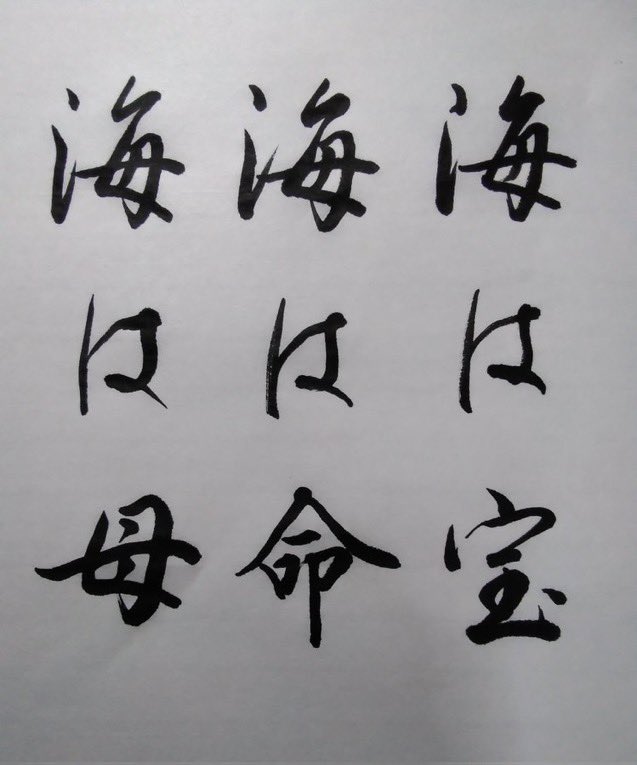 海は宝
海は命
海は母